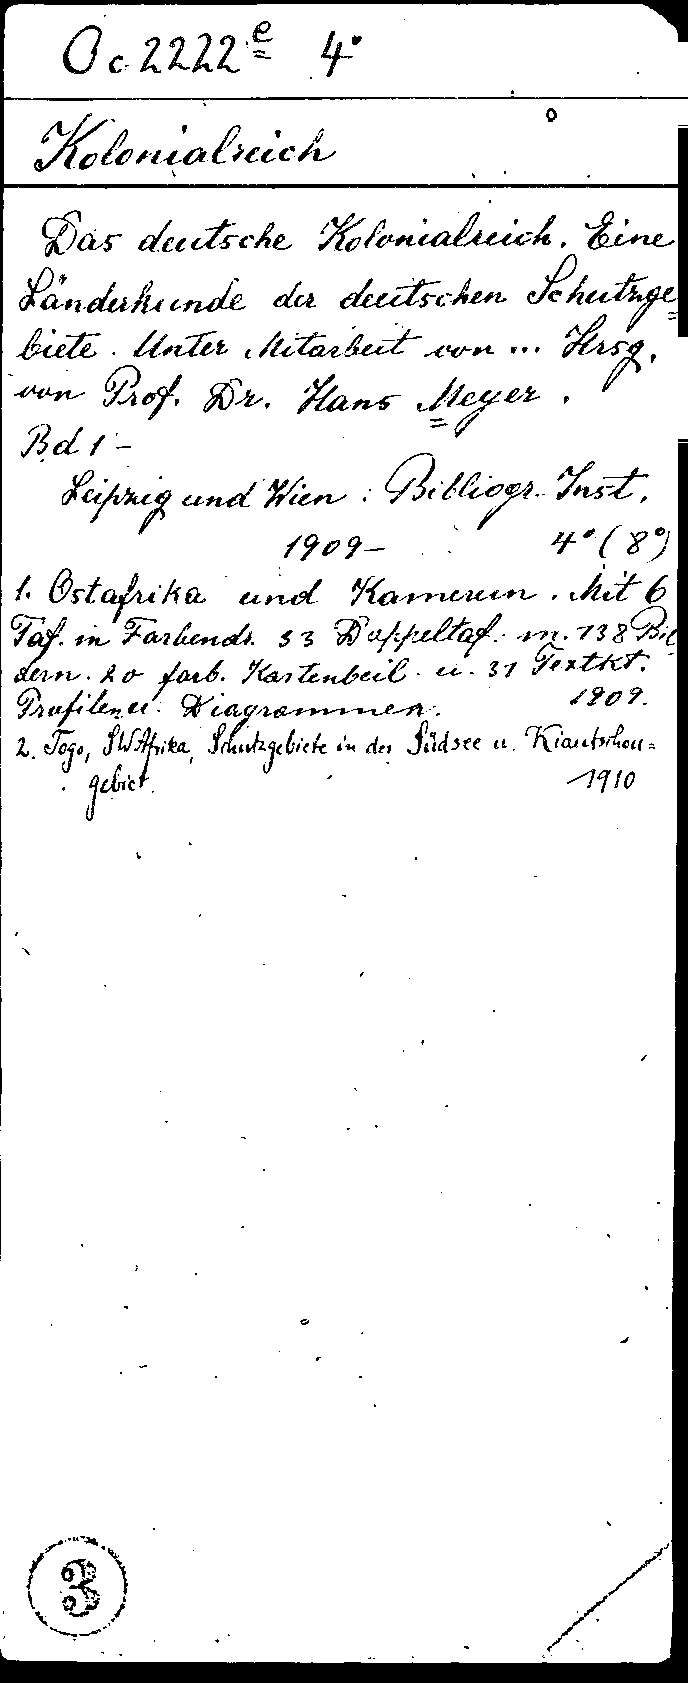 Oc 2222e 4°
Kolonialreich
Das deutsche Kolonialreich. Eine
Länderkunde der deutschen Schutzge=
biete. Unter Mitarbeit von ... Hrsg.
von Prof. Dr. Hans Meyer.
Bd 1 -
Leipzig und Wien: Bibliogr. Inst.
1909- 4° (8°)
1. Ostafrika und Kamerun. Mit 6
Taf. in Farbendr. 33 Doppeltaf. m. 138 Bil
dern. 20 farb. Kartenbeil. u. 31 Textkt.
Profilen u. Diagrammen. 1909.
2. Togo, SWAfrika, Schutzgebiete in der Südsee u. Kiautschou=
gebiet. 1910
3